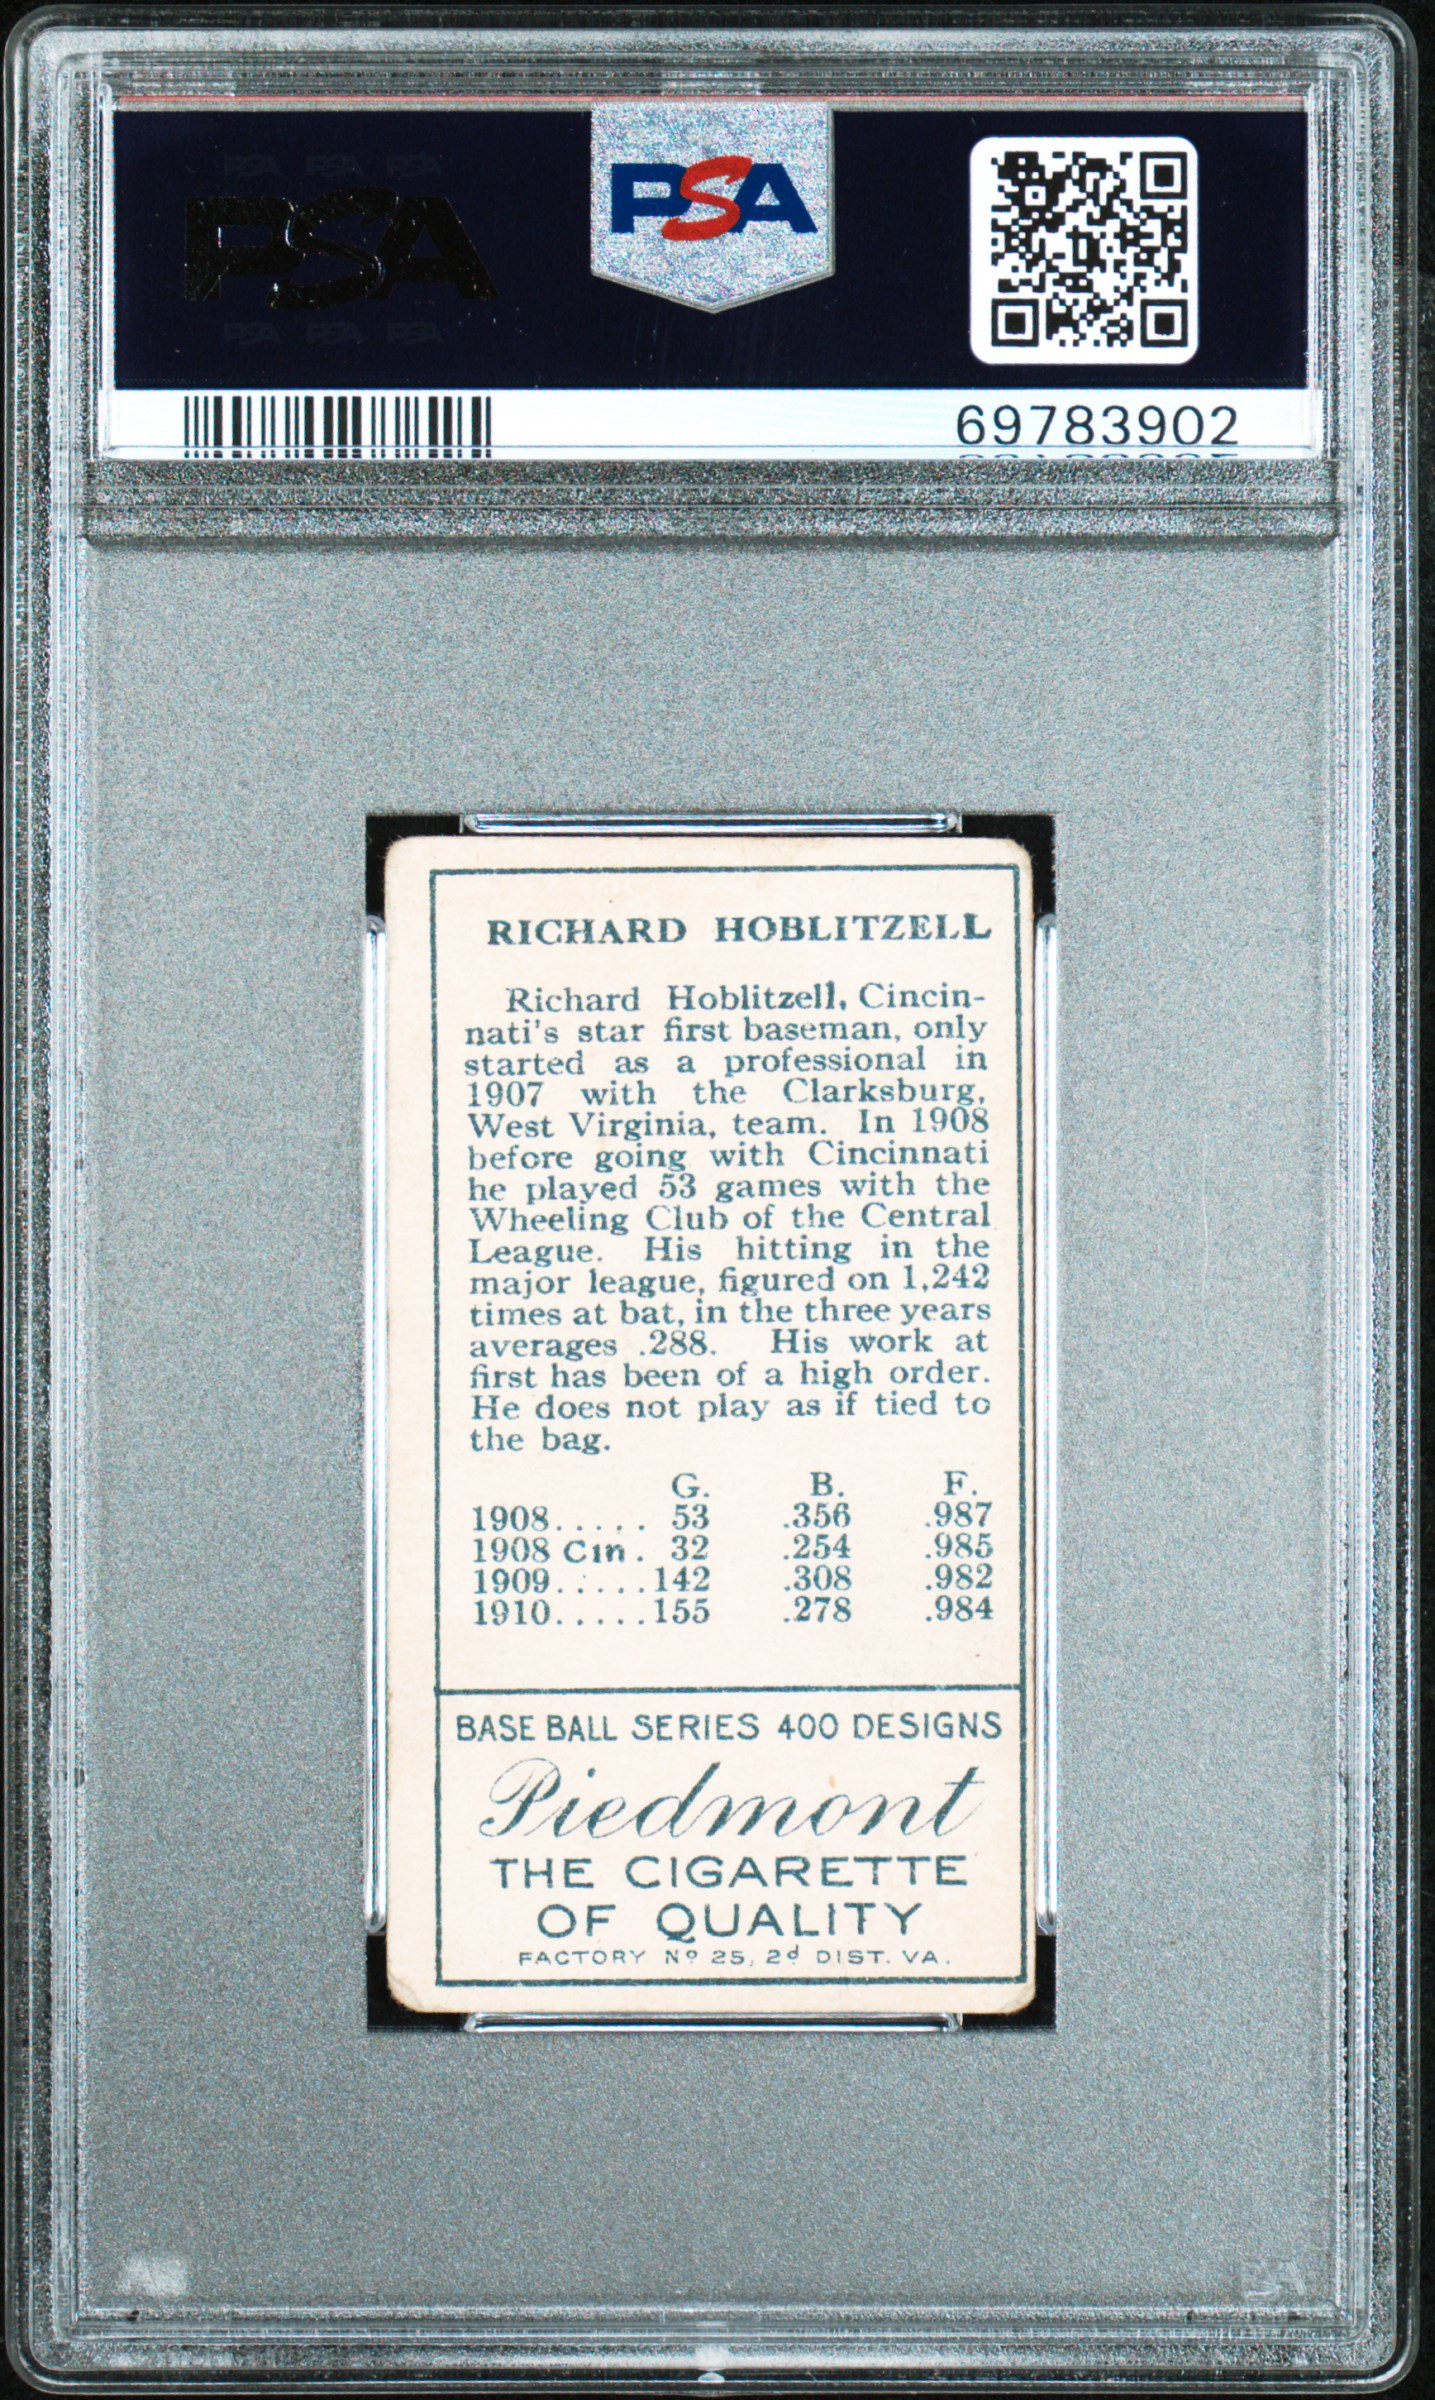 PSA PSA PSA
PSA
PSA PSA PSA
PSA
69783902
RICHARD HOBLITZELL
Richard Hoblitzell, Cincin-
nati's star first baseman, only
started as a professional in
1907 with the Clarksburg,
West Virginia, team. In 1908
before going with Cincinnati
he played 53 games with the
Wheeling Club of the Central
League. His hitting in the
major league, figured on 1,242
times at bat, in the three years
averages .288. His work at
first has been of a high order.
He does not play as if tied to
the bag.
G. B. F.
1908..... 53 .356 .987
1908 Cin. 32 .254 .985
1909.....142 .308 .982
1910.....155 .278 .984
BASE BALL SERIES 400 DESIGNS
Piedmont
THE CIGARETTE
OF QUALITY
FACTORY Nº 25, 2d DIST. VA.
PSA